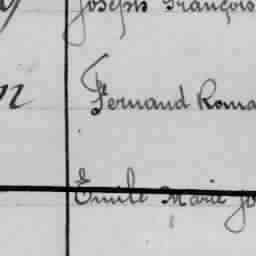 Joseph François
Fernand Roma
Emile Marie Jo